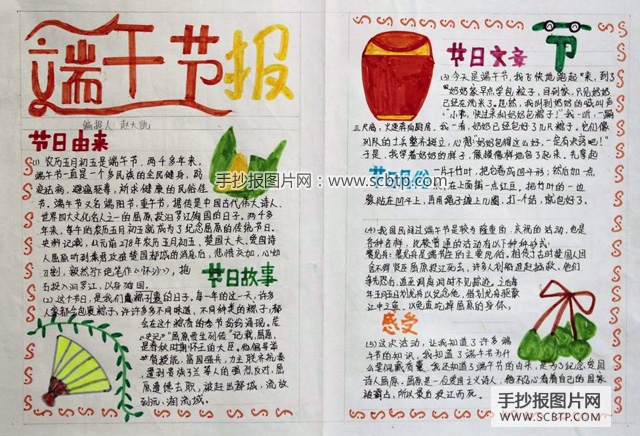 端午节报
编报人:赵大凯
节日由来
(1)农历五月初五是端午节,两千多年来,
端午节一直是一个多民族的全民健身,防
疫祛病,避瘟驱毒,祈求健康的民俗佳
节,端午节又名端阳节,重午节,据传是中国古代伟大诗人,
世界四大文化名人之一的屈原投汨罗江殉国的日子。两千多
年来,每年的农历五月初五就成为了纪念屈原的传统节日。
史料记载,公元前278年农历五月初五,楚国大夫、爱国诗
人屈原听到秦军攻破楚国都城的消息后,悲愤交加,心如
刀割,毅然写下绝笔作《怀沙》,抱
石投入汨罗江,以身殉国。
节日故事
(2)这个节日,是我们
的日子。每一年的这一天,许多
人家都会包裹粽子,许许多多不同味道,不同种类的粽子,都
会在这个粽香的季节
史记》"屈原贾生列传"记载,屈原,
是春秋时期楚怀王的大臣。他倡导举
贤授能,富国强兵,力主联齐抗秦,
遭到贵族子兰等人的强烈反对,屈
原遭馋去职,被赶出都城,流放
到沅、湘流域。
节
节日文章
(3)今天是端午节,我飞快地跑起来,到了
奶奶家早点学包粽子,回到家,只见奶奶
已经在洗米了。忽然,我听到奶奶的喊叫声
"小凯,快过来和奶奶包粽子!"我一听,
三尺高,火速奔向厨房,我一看,奶奶已经包好了几只粽子,它们像
列队的士兵整齐挺立,心想:奶奶包得这么好,一定有决窍吧!"于
是,我学着奶奶的样子,像模像样地包了起来,先拿起
一片干竹叶,把它卷成圆斗形;然后加一点
在上面摘一点红豆,把竹叶的一边
贴在凹斗上,再用绳子缠上几圈,打一个结,就包好了。
节日风俗
(4)我国民间过端午节是较为隆重的,庆祝的活动也是
各种各样,比较普遍的活动有以下种种形式:
赛龙舟:赛龙舟是端午节的主要习俗,相传古时楚国人因
舍不得贤臣屈原投江死去,许多人划船追赶拯救。他们
争先恐后,追至洞庭湖时不见踪迹。之后每
年五月五日划龙舟以纪念他,借划龙舟驱散
江中之鱼,以免鱼吃掉屈原的身体。
感受
(5)这次活动,让我知道了许多端
午节的知识,我知道了端午节为什
么要佩戴香囊,我还知道了端午节的由来,是为了纪念爱国
诗人屈原,屈原是一位爱国主义诗人,他不忍心看着自己的国家
被霸占,所以最后投江而死。
手抄报图片网:www.scbtp.com
手抄报图片网
WWW.SCBTP.COM